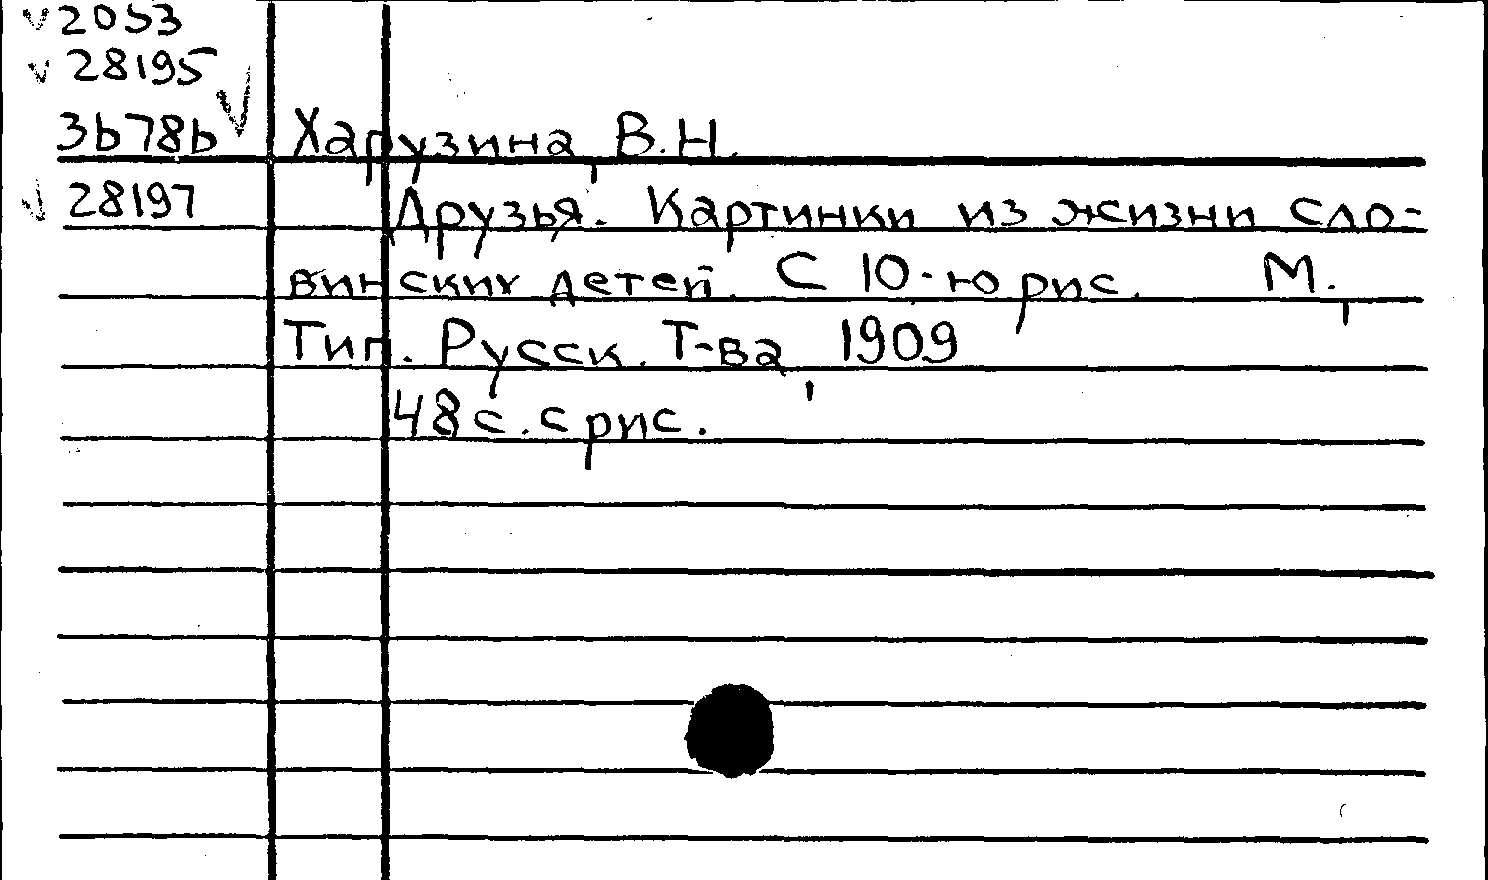 2053
28195
3b78b
28197
Харузина, В.Н.
Друзья. Картинки из жизни сло-
винских детей. С 10-ю рис. М.,
Тип. Русск. Т-ва, 1909
48 с. с рис.